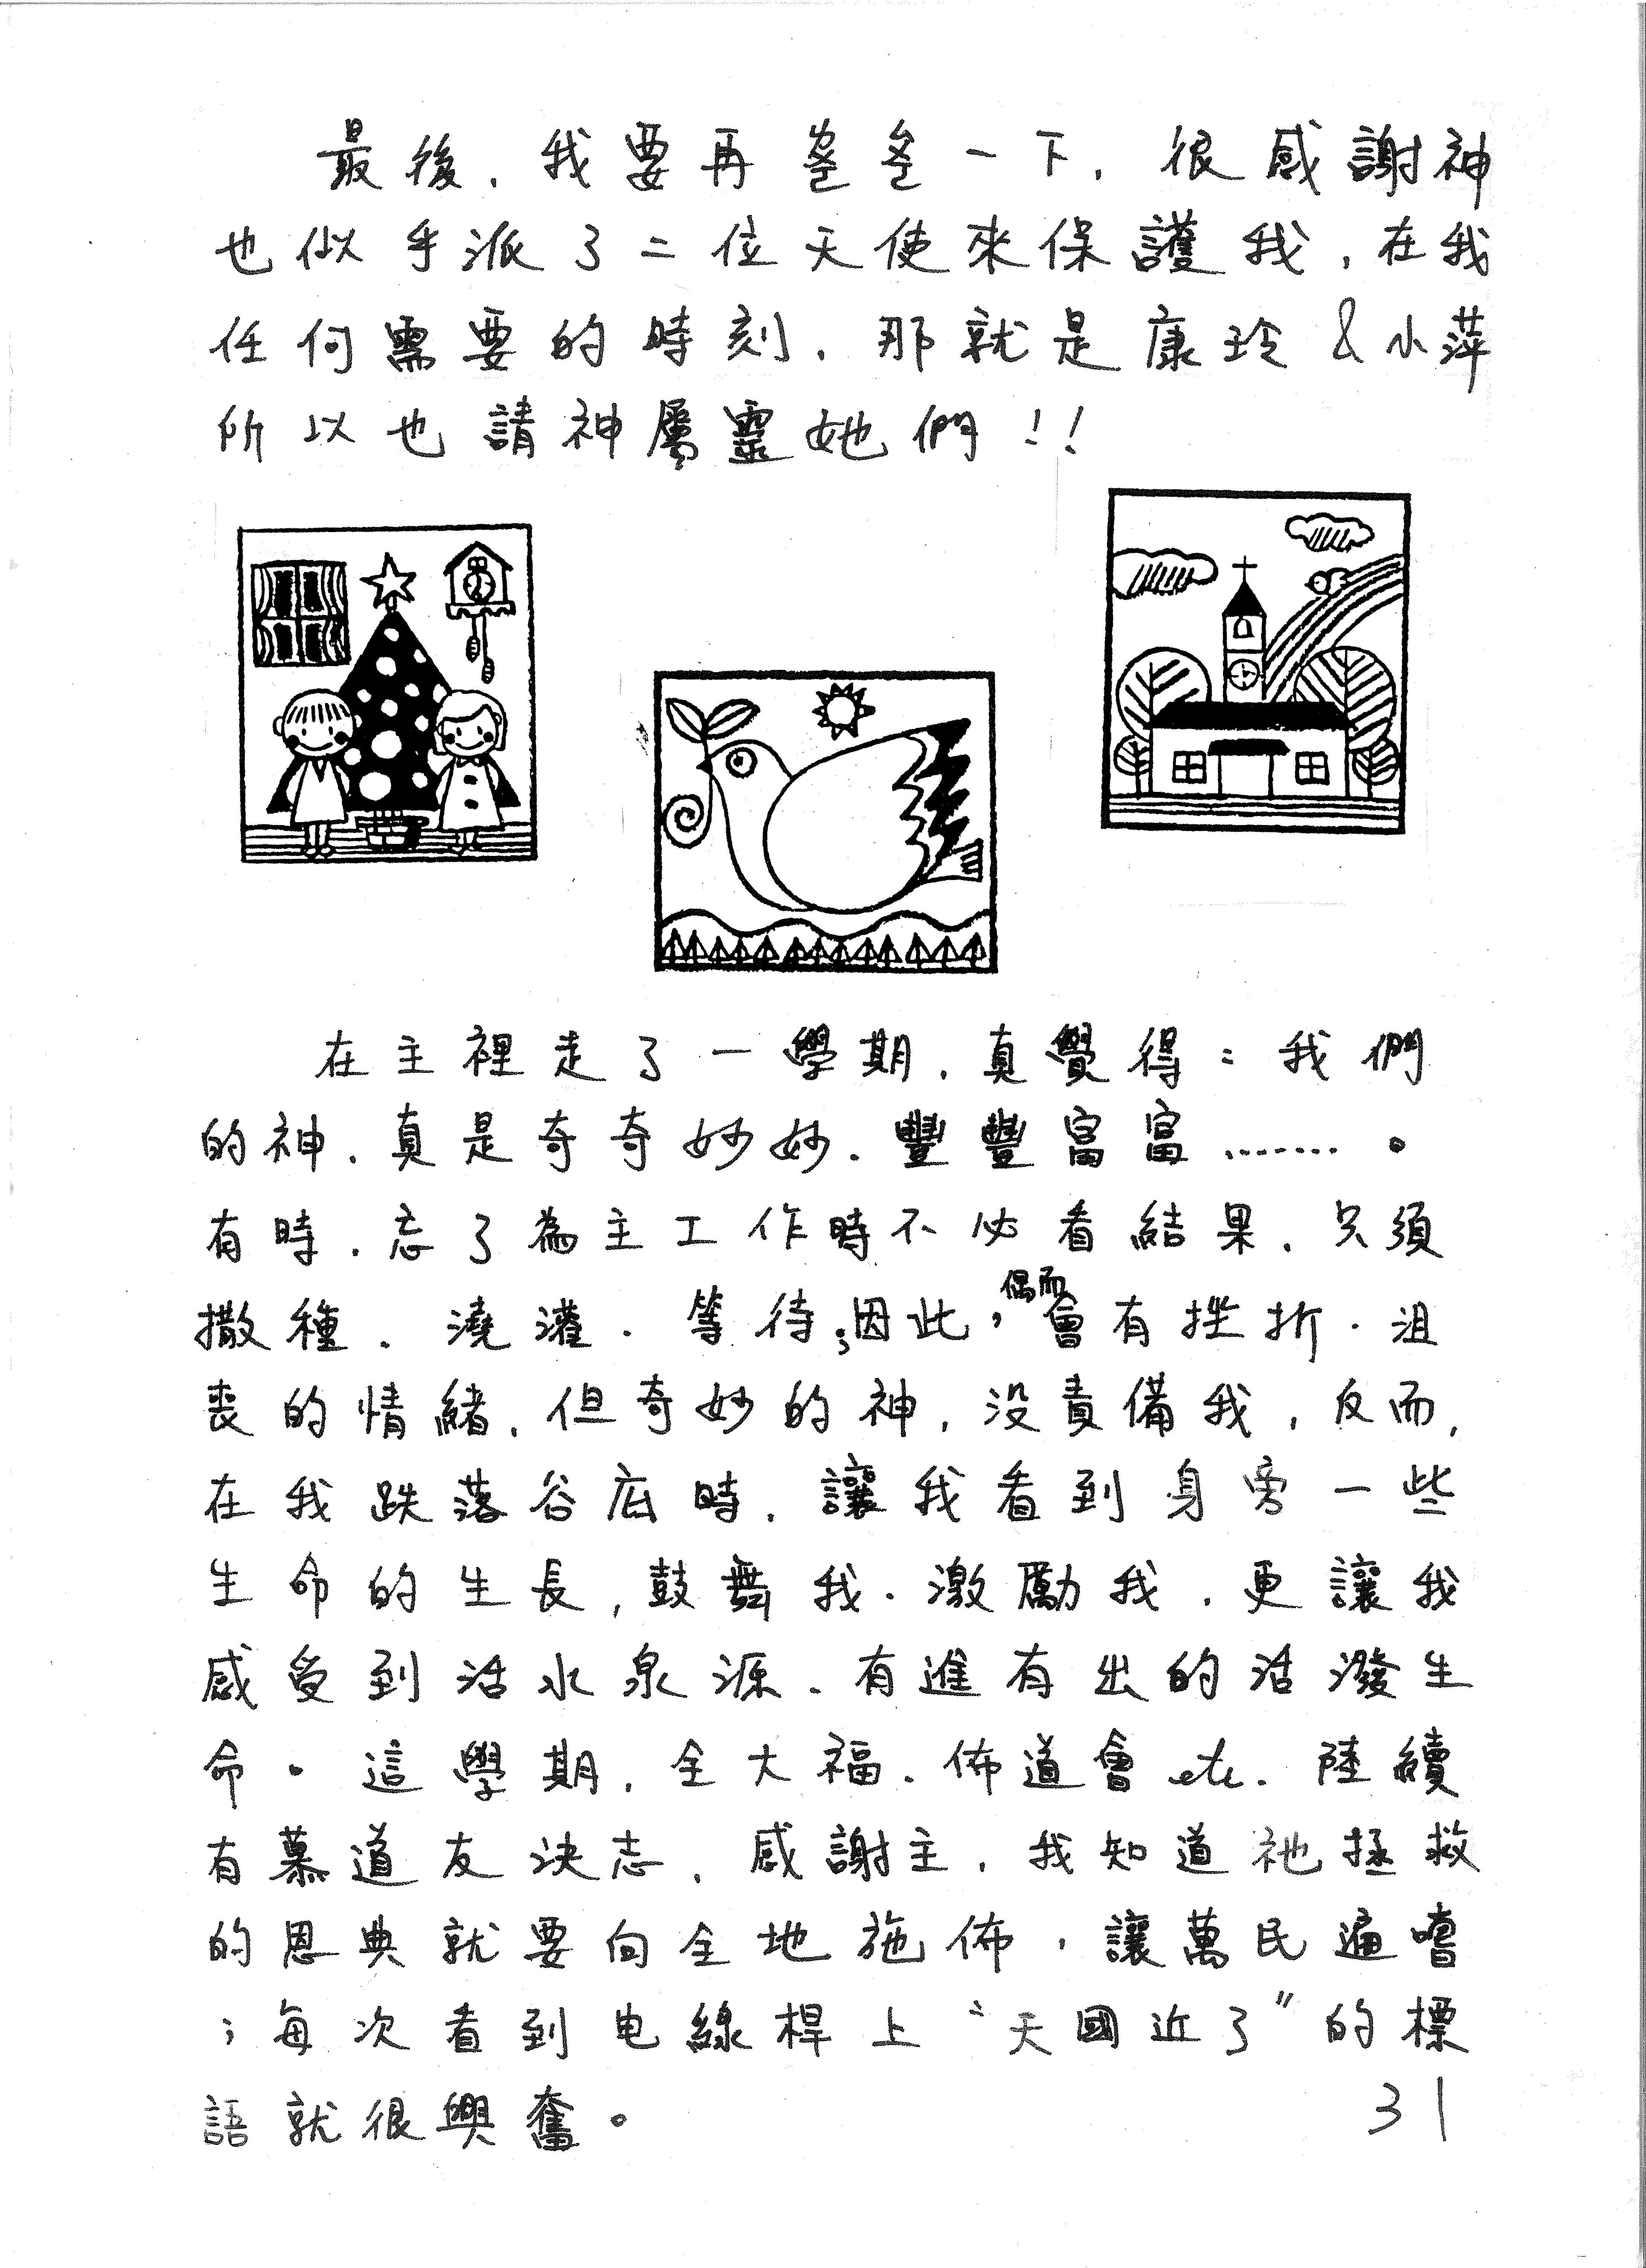 最後，我要再爸爸一下，很感謝神
也似乎派了二位天使來保護我，在我
任何需要的時刻，那就是康玲&小萍
所以也請神屬靈她們!!
在主裡走了一學期，真覺得：我們
的神，真是奇奇妙妙．豐豐富富.......。
有時，忘了為主工作時不必看結果，只須
撒種．澆灌．等待；因此，偶而會有挫折．沮
喪的情緒，但奇妙的神，沒責備我，反而，
在我跌落谷底時，讓我看到身旁一些
生命的生長，鼓舞我．激勵我，更讓我
感受到活水泉源．有進有出的活潑生
命。這學期，全大福．佈道會 etc. 陸續
有慕道友決志，感謝主，我知道祂拯救
的恩典就要向全地施佈，讓萬民遍嚐
；每次看到电線桿上“天國近了”的標
語就很興奮。
31